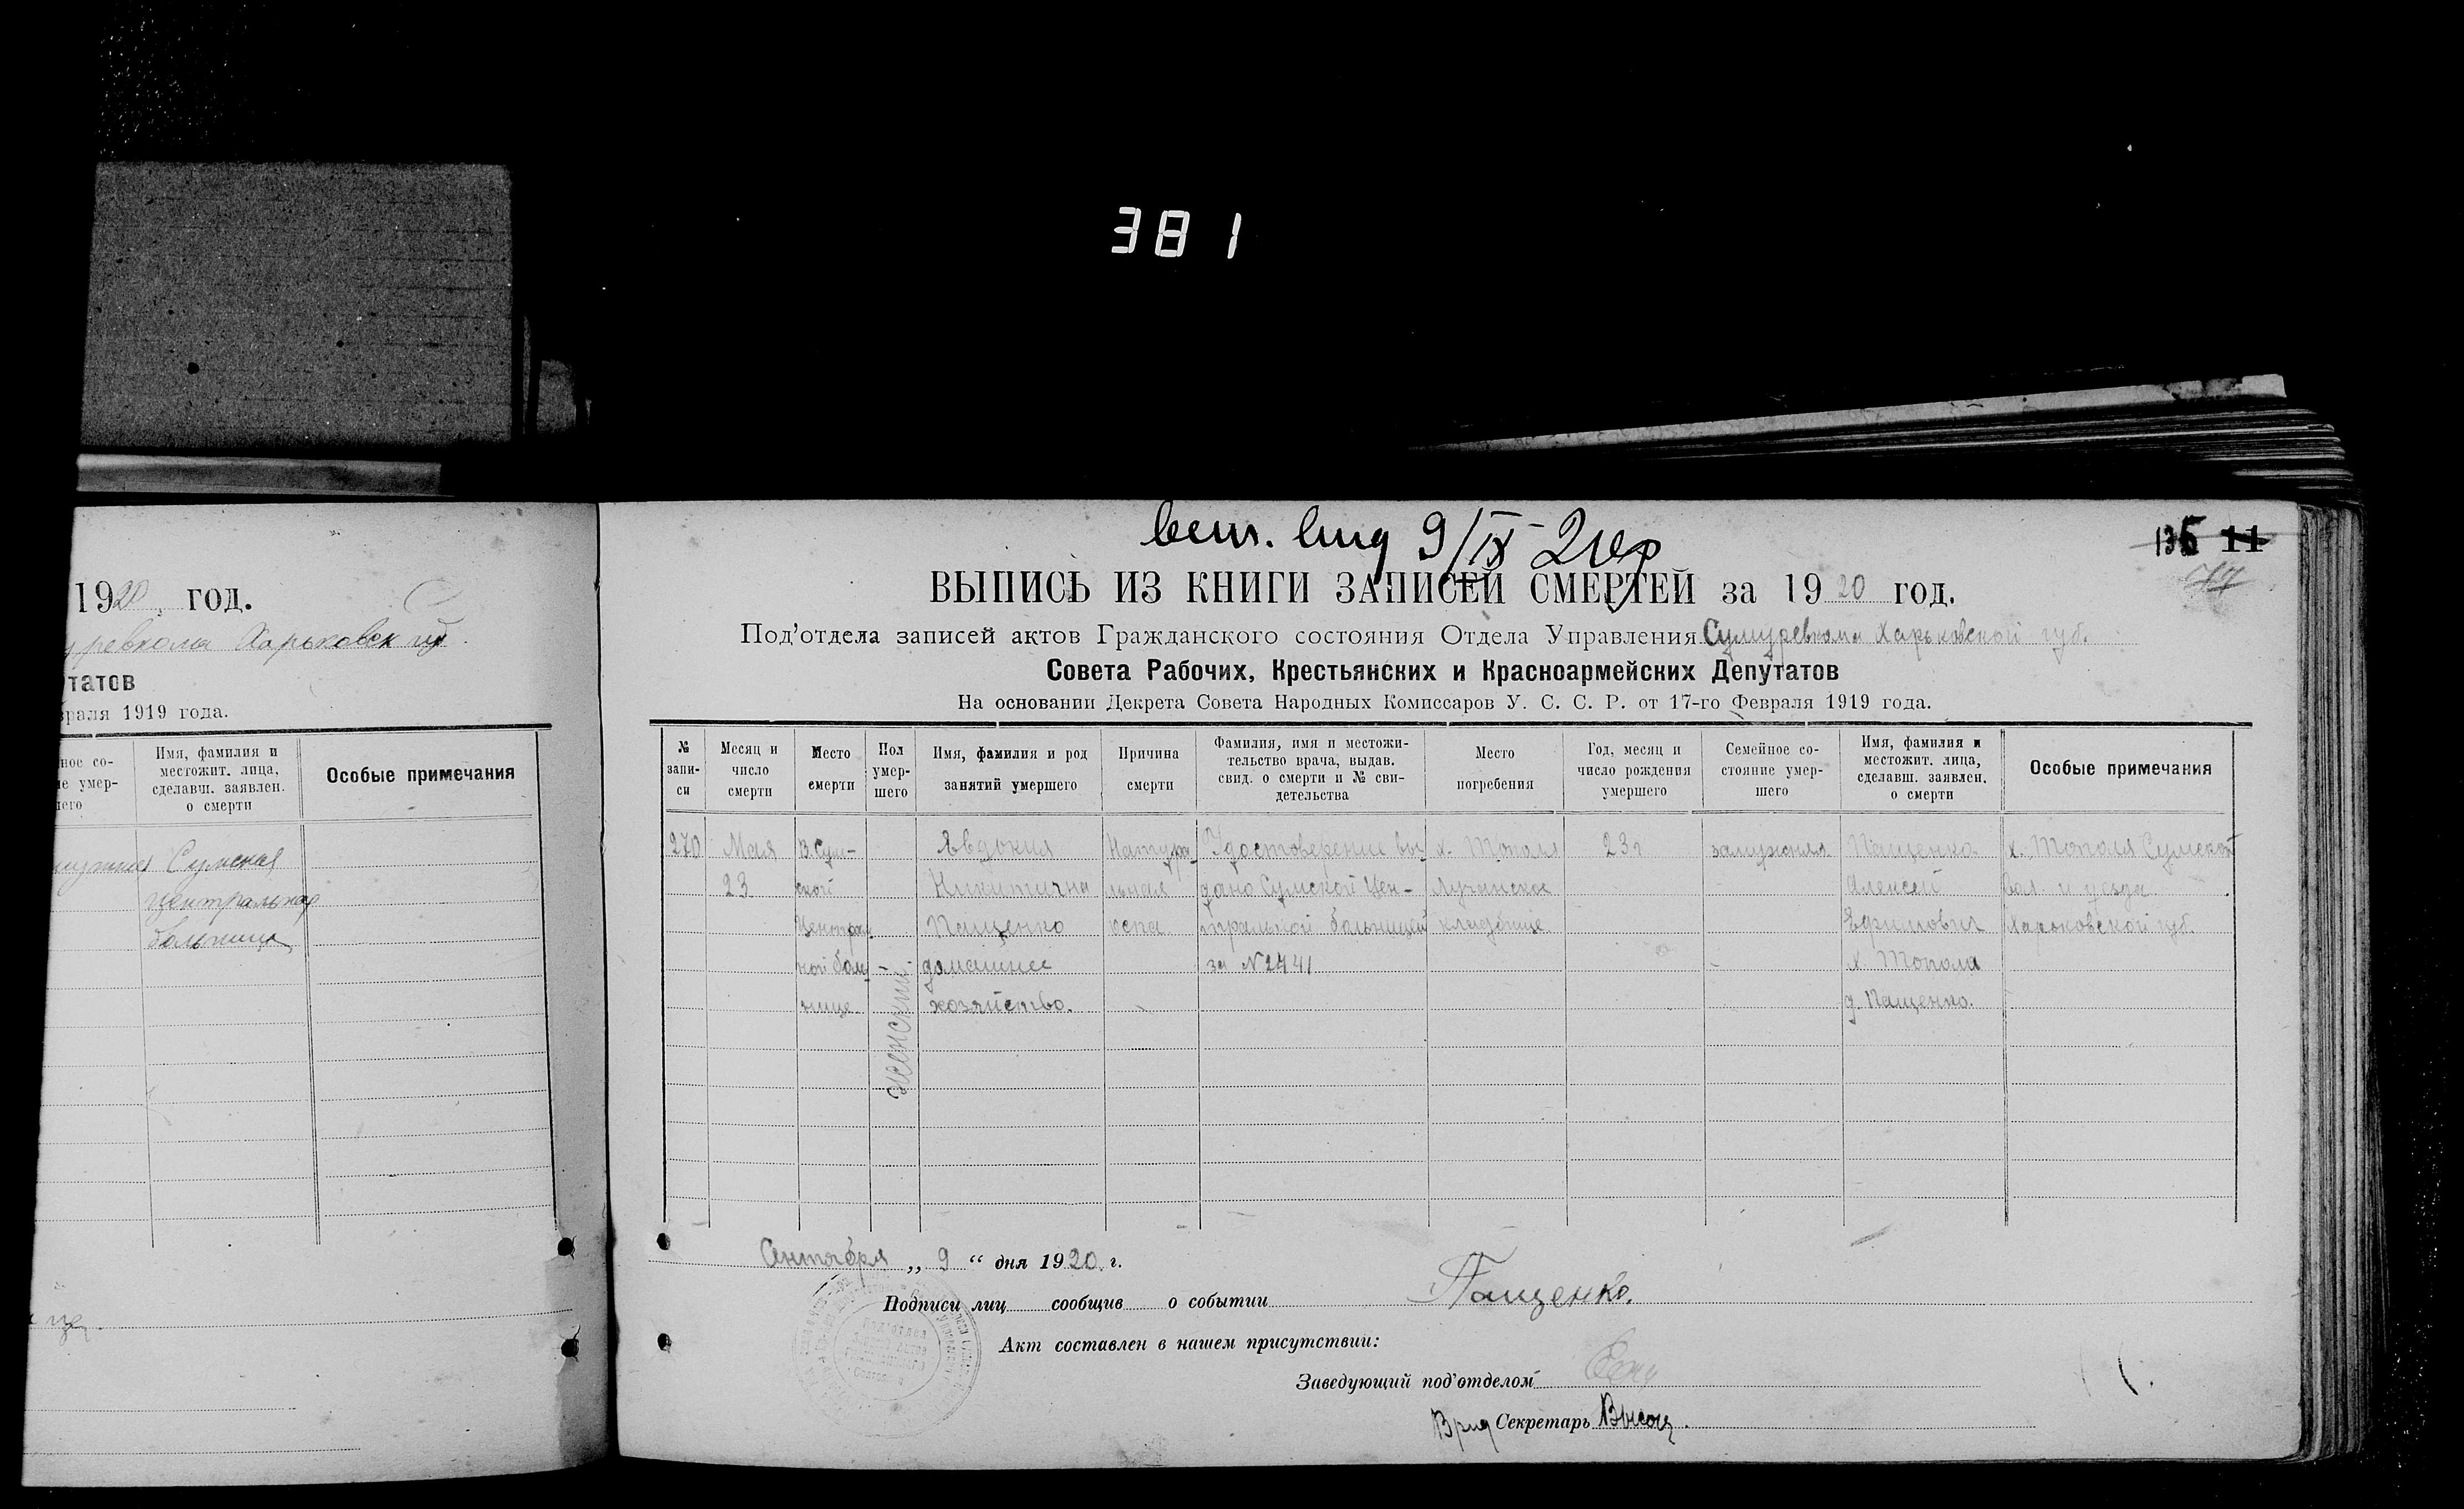 381
1920 год.
уревкома Харьковск губ.
утатов
враля 1919 года.
ное со-
ие умер-
шего
Имя, фамилия и
местожит. лица,
сделавш. заявлен.
о смерти
Особые примечания
Сумская
центральная
больница
9/IX 20г
135 11
ВЫПИСЬ ИЗ КНИГИ ЗАПИСЕЙ СМЕРТЕЙ за 1920 год.
Под'отдела записей актов Гражданского состояния Отдела Управления Сумуревкома Харьковской губ.
Совета Рабочих, Крестьянских и Красноармейских Депутатов
На основании Декрета Совета Народных Комиссаров У. С. С. Р. от 17-го Февраля 1919 года.
№
запи-
си
Месяц и
число
смерти
Место
смерти
Пол
умер-
шего
Имя, фамилия и род
занятий умершего
Причина
смерти
Фамилия, имя и местожи-
тельство врача, выдав.
свид. о смерти и № сви-
детельства
Место
погребения
Год, месяц и
число рождения
умершего
Семейное со-
стояние умер-
шего
Имя, фамилия и
местожит. лица,
сделавш. заявлен.
о смерти
Особые примечания
270
Мая
23
В Сум-
ской
Централь
ной боль
нице
женский
Евдокия
Никитична
Пащенко
домашнее
хозяйство.
Натура
льная
оспа
Удостоверение вы
дано Сумской Цен-
тральной больницей
за №2441
х. Тополя
Лучанское
кладбище
23 г
замужняя
Пащенко
Алексей
Ефимович
х. Тополя
д. Пащенко.
х. Тополя Сумской
вол. и уезда
Харьковской губ.
Сентября „ 9 “ дня 1920 г.
Подписи лиц сообщив о событии Пащенко.
Акт составлен в нашем присутствии:
Заведующий под'отделом
Врид Секретарь Высоц